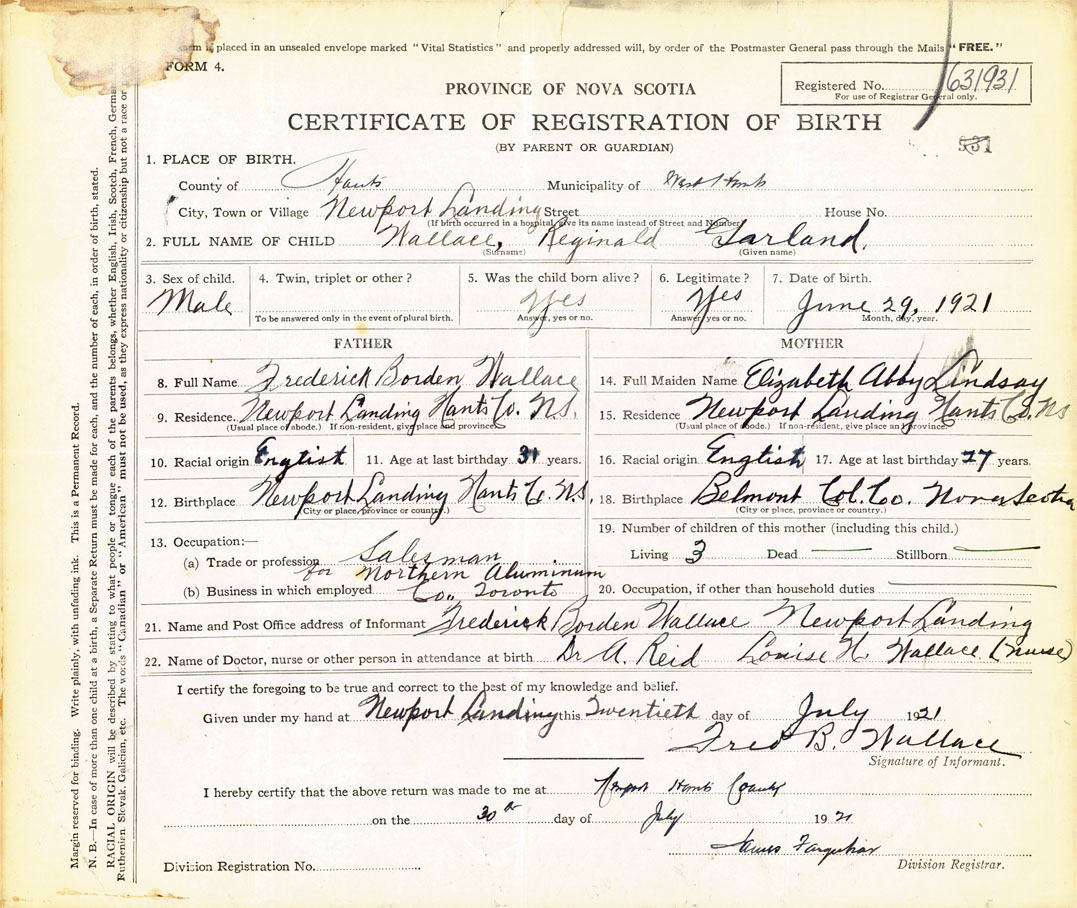 is placed in an unsealed envelope marked "Vital Statistics" and properly addressed will, by order of the Postmaster General pass through the Mails "FREE."
FORM 4.
Registered No. 631931
For use of Registrar General only.
PROVINCE OF NOVA SCOTIA
CERTIFICATE OF REGISTRATION OF BIRTH
(BY PARENT OR GUARDIAN)
1. PLACE OF BIRTH.
County of Hants Municipality of West Hants
City, Town or Village Newport Landing Street House No.
(If birth occurred in a hospital, give its name instead of Street and Number)
2. FULL NAME OF CHILD Wallace, Reginald Garland.
(Surname) (Given name)
3. Sex of child. 4. Twin, triplet or other? 5. Was the child born alive? 6. Legitimate? 7. Date of birth.
Male Yes Yes June 29, 1921
To be answered only in the event of plural birth. Answer, yes or no. Answer, yes or no. Month, day, year.
FATHER
8. Full Name Frederick Borden Wallace
9. Residence. Newport Landing Hants Co. N.S.
(Usual place of abode.) If non-resident, give place and province.
10. Racial origin English 11. Age at last birthday 31 years.
12. Birthplace Newport Landing Hants Co. N.S.
(City or place, province or country.)
13. Occupation:—
(a) Trade or profession Salesman
for Northern Aluminum
(b) Business in which employed Co., Toronto
MOTHER
14. Full Maiden Name Elizabeth Abby Lindsay
15. Residence Newport Landing Hants Co. NS
(Usual place of abode.) If non-resident, give place and province.
16. Racial origin English 17. Age at last birthday 27 years.
18. Birthplace Belmont Col. Co. Nova Scotia
(City or place, province or country.)
19. Number of children of this mother (including this child.)
Living 3 Dead — Stillborn —
20. Occupation, if other than household duties —
21. Name and Post Office address of Informant Frederick Borden Wallace Newport Landing
22. Name of Doctor, nurse or other person in attendance at birth Dr A. Reid Louise H. Wallace (nurse)
I certify the foregoing to be true and correct to the best of my knowledge and belief.
Given under my hand at Newport Landing this Twentieth day of July 1921
Fred B. Wallace
Signature of Informant.
I hereby certify that the above return was made to me at Newport Hants County
on the 30th day of July 1921
James Farquhar
Division Registrar.
Division Registration No.
Margin reserved for binding. Write plainly, with unfading ink. This is a Permanent Record.
N. B.—In case of more than one child at a birth, a Separate Return must be made for each, and the number of each, in order of birth, stated.
RACIAL ORIGIN will be described by stating to what people or tongue each of the parents belongs, whether English, Irish, Scotch, French, German
Ruthenian, Slovak, Galician, etc. The words "Canadian" or "American" must not be used, as they express nationality or citizenship but not a race or